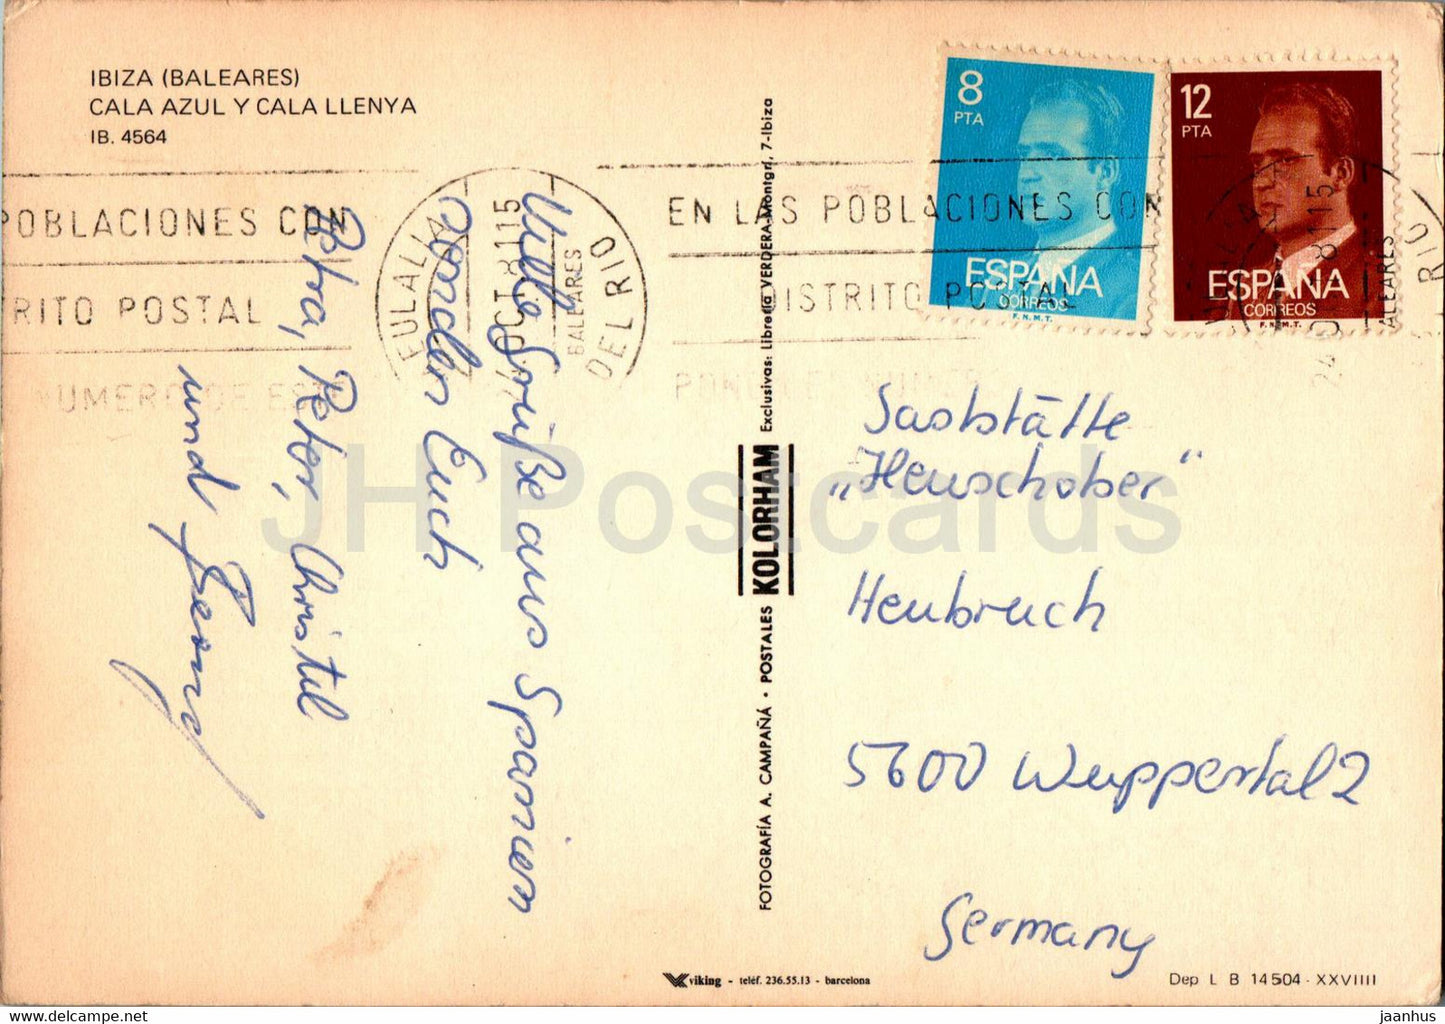 IBIZA (BALEARES)
CALA AZUL Y CALA LLENYA
IB. 4564
8
PTA
ESPAÑA
CORREOS
F.N.M.T.
12
PTA
ESPAÑA
CORREOS
F.N.M.T.
POBLACIONES CON
RITO POSTAL
NUMERO DE
EULALIA
DEL RIO
OCT 81 15
BALEARES
EN LAS POBLACIONES CON
DISTRITO POSTAL
24
81 15
ALEARES
RIO
Viele Grüße aus Spanien
senden Euch
Petra, Peter, Christel
und Georg
FOTOGRAFÍA A. CAMPAÑÁ • POSTALES KOLORHAM Exclusivas: Librería VERDERA-Montgrí, 7-Ibiza
Gaststätte
„Heuschober"
Heubruch
5600 Wuppertal 2
Germany
viking - teléf. 236.55.13 - barcelona
Dep L B 14504 - XXVIIII
JH Postcards
www.jaanhus.net
jaanhus